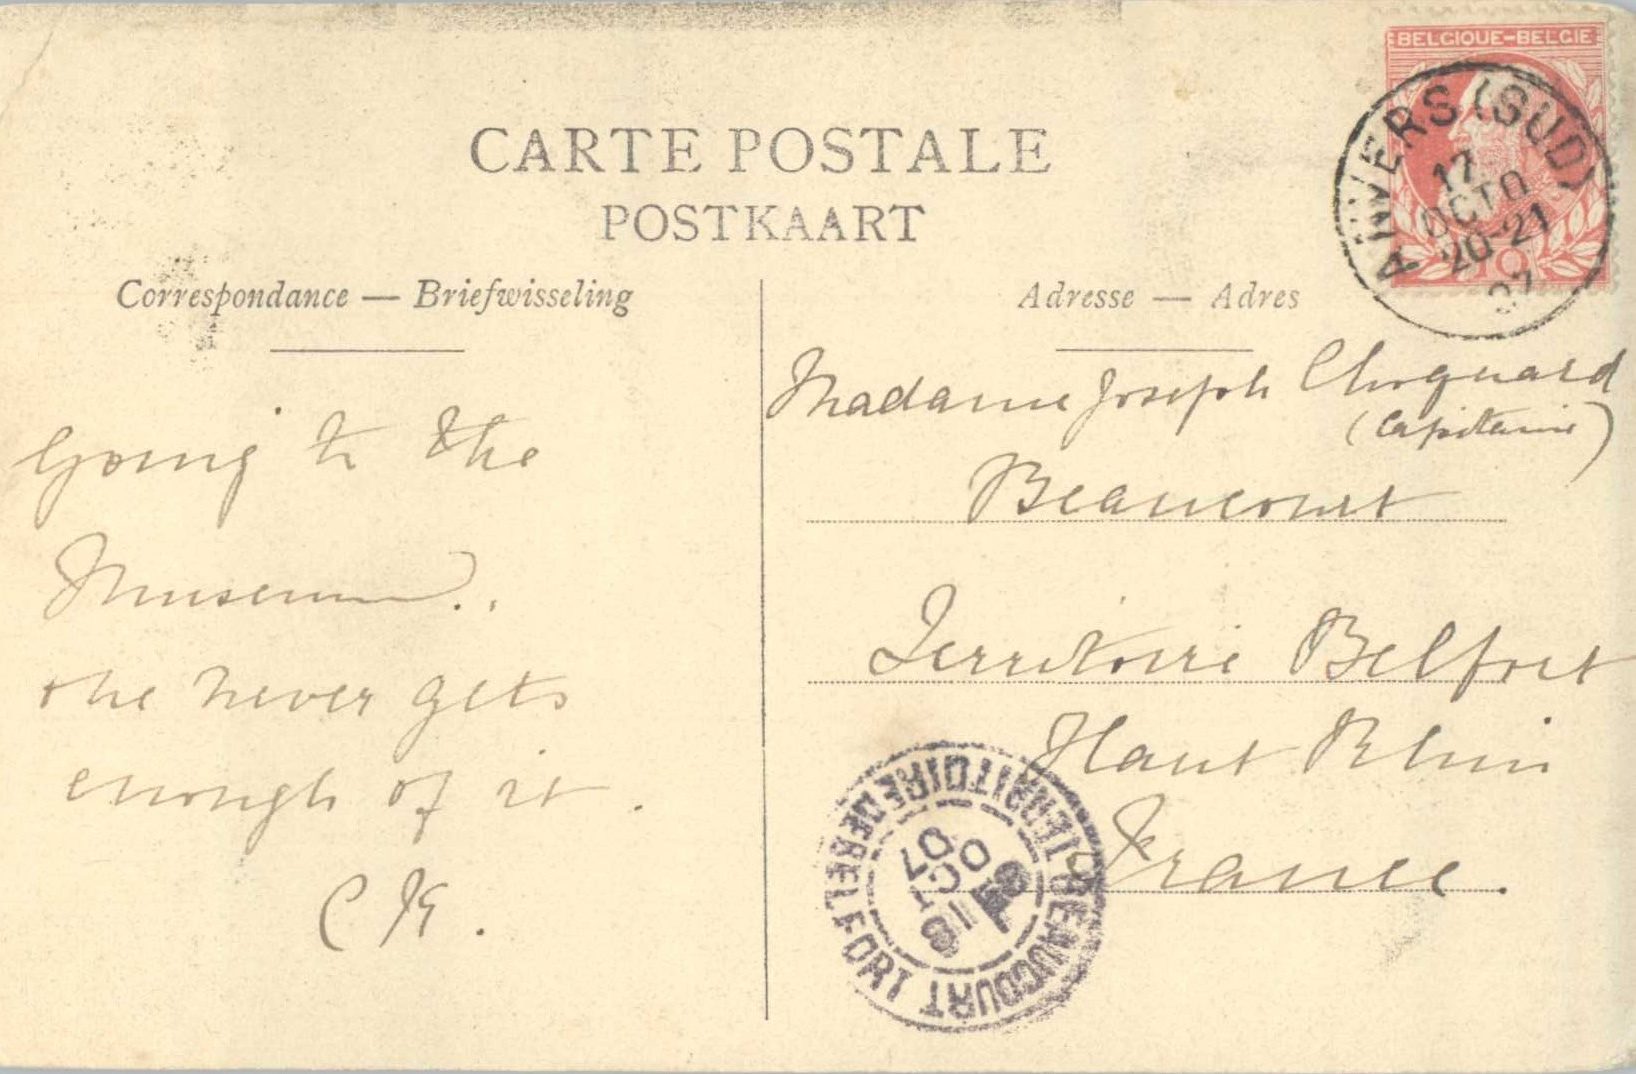 BELGIQUE-BELGIE
ANVERS (SUD)
17
OCTO
20-21
07
10
CARTE POSTALE
POSTKAART
Correspondance — Briefwisseling
Adresse — Adres
Going to the
Museum..
One never gets
enough of it.
C K.
Madame Joseph Choquard
(Capitaine)
Beaucourt
Territoire Belfort
Haut Rhin
France.
BEAUCOURT
TERRITOIRE DE BELFORT
OCT
07